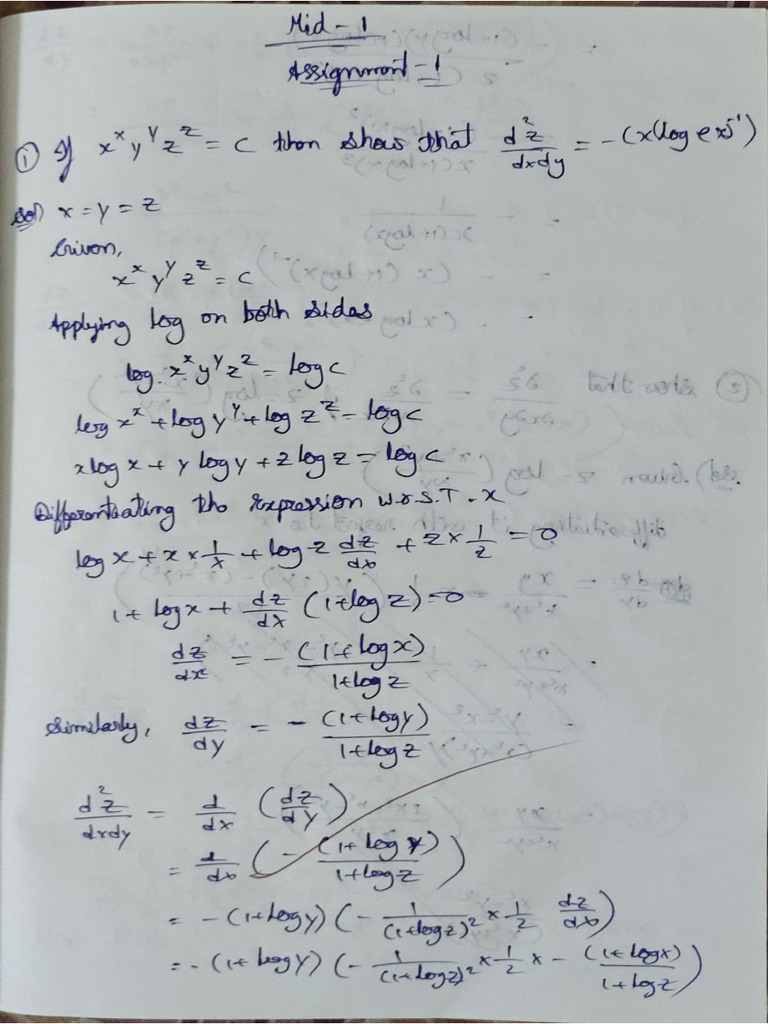 Mid - 1
Assignment - 1
① If x^x y^y z^z = c then show that d²z/dxdy = -(x(log ex)⁻¹)
Sol) x = y = z
Given,
x^x y^y z^z = c
Applying log on both sides
log x^x y^y z^z = log c
log x^x + log y^y + log z^z = log c
x log x + y log y + z log z = log c
Differentiating the expression w.r.s.T. x
log x + x × 1/x + log z dz/dx + z × 1/z = 0
1 + log x + dz/dx (1 + log z) = 0
dz/dx = - (1 + log x) / 1 + log z
Similarly, dz/dy = - (1 + log y) / 1 + log z
d²z/dxdy = d/dx (dz/dy)
= d/dx (- (1 + log y) / 1 + log z)
= -(1 + log y) (- 1/(1 + log z)² × 1/z dz/dx)
= -(1 + log y) (- 1/(1 + log z)² × 1/z × - (1 + log x) / 1 + log z)